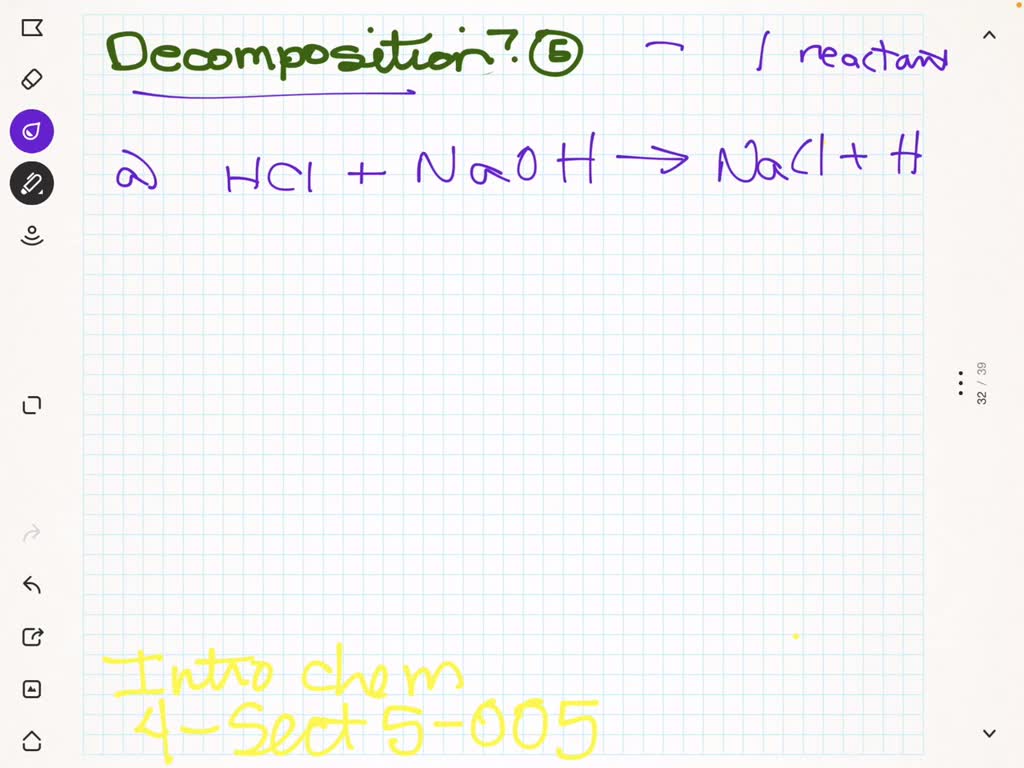 Decomposition? ⑤ - 1 reactant
a) HCl + NaOH → NaCl + H
32 / 39
Intro chem
4-Sect 5-005